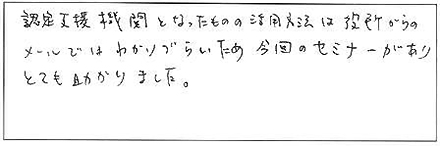 認定支援機関となったものの活用方法は役所からの
メールではわかりづらいため今回のセミナーがあり
とても助かりました。